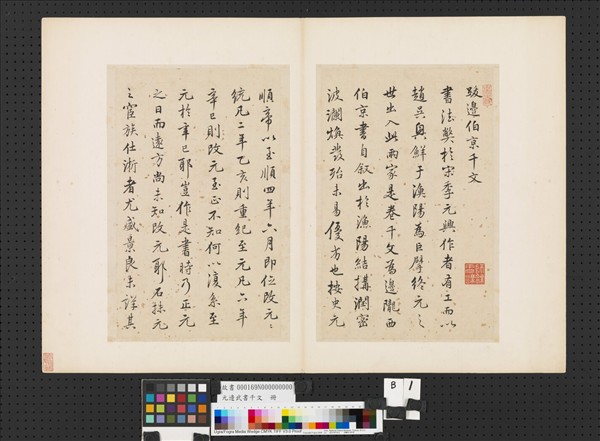 跋邊伯京千文
書法獘於宋季元興作者有工而以
趙吳興鮮于漁陽為巨擘終元之
世出入此兩家是卷千文為邊隴西
伯京書自叙出於漁陽結搆潤密
波瀾煥發殆未易優劣也按史元
順帝以至順四年六月即位改元元
統凡二年乙亥則重紀至元凡六年
辛巳則改元至正不知何以復系至
元於辛巳耶豈作是書時乃正元
之日而遠方尚未知改元耶石抹元
之宦族仕浙者尤盛葉良未詳其
故書000169N000000000
元邊武書千文 冊
B 1